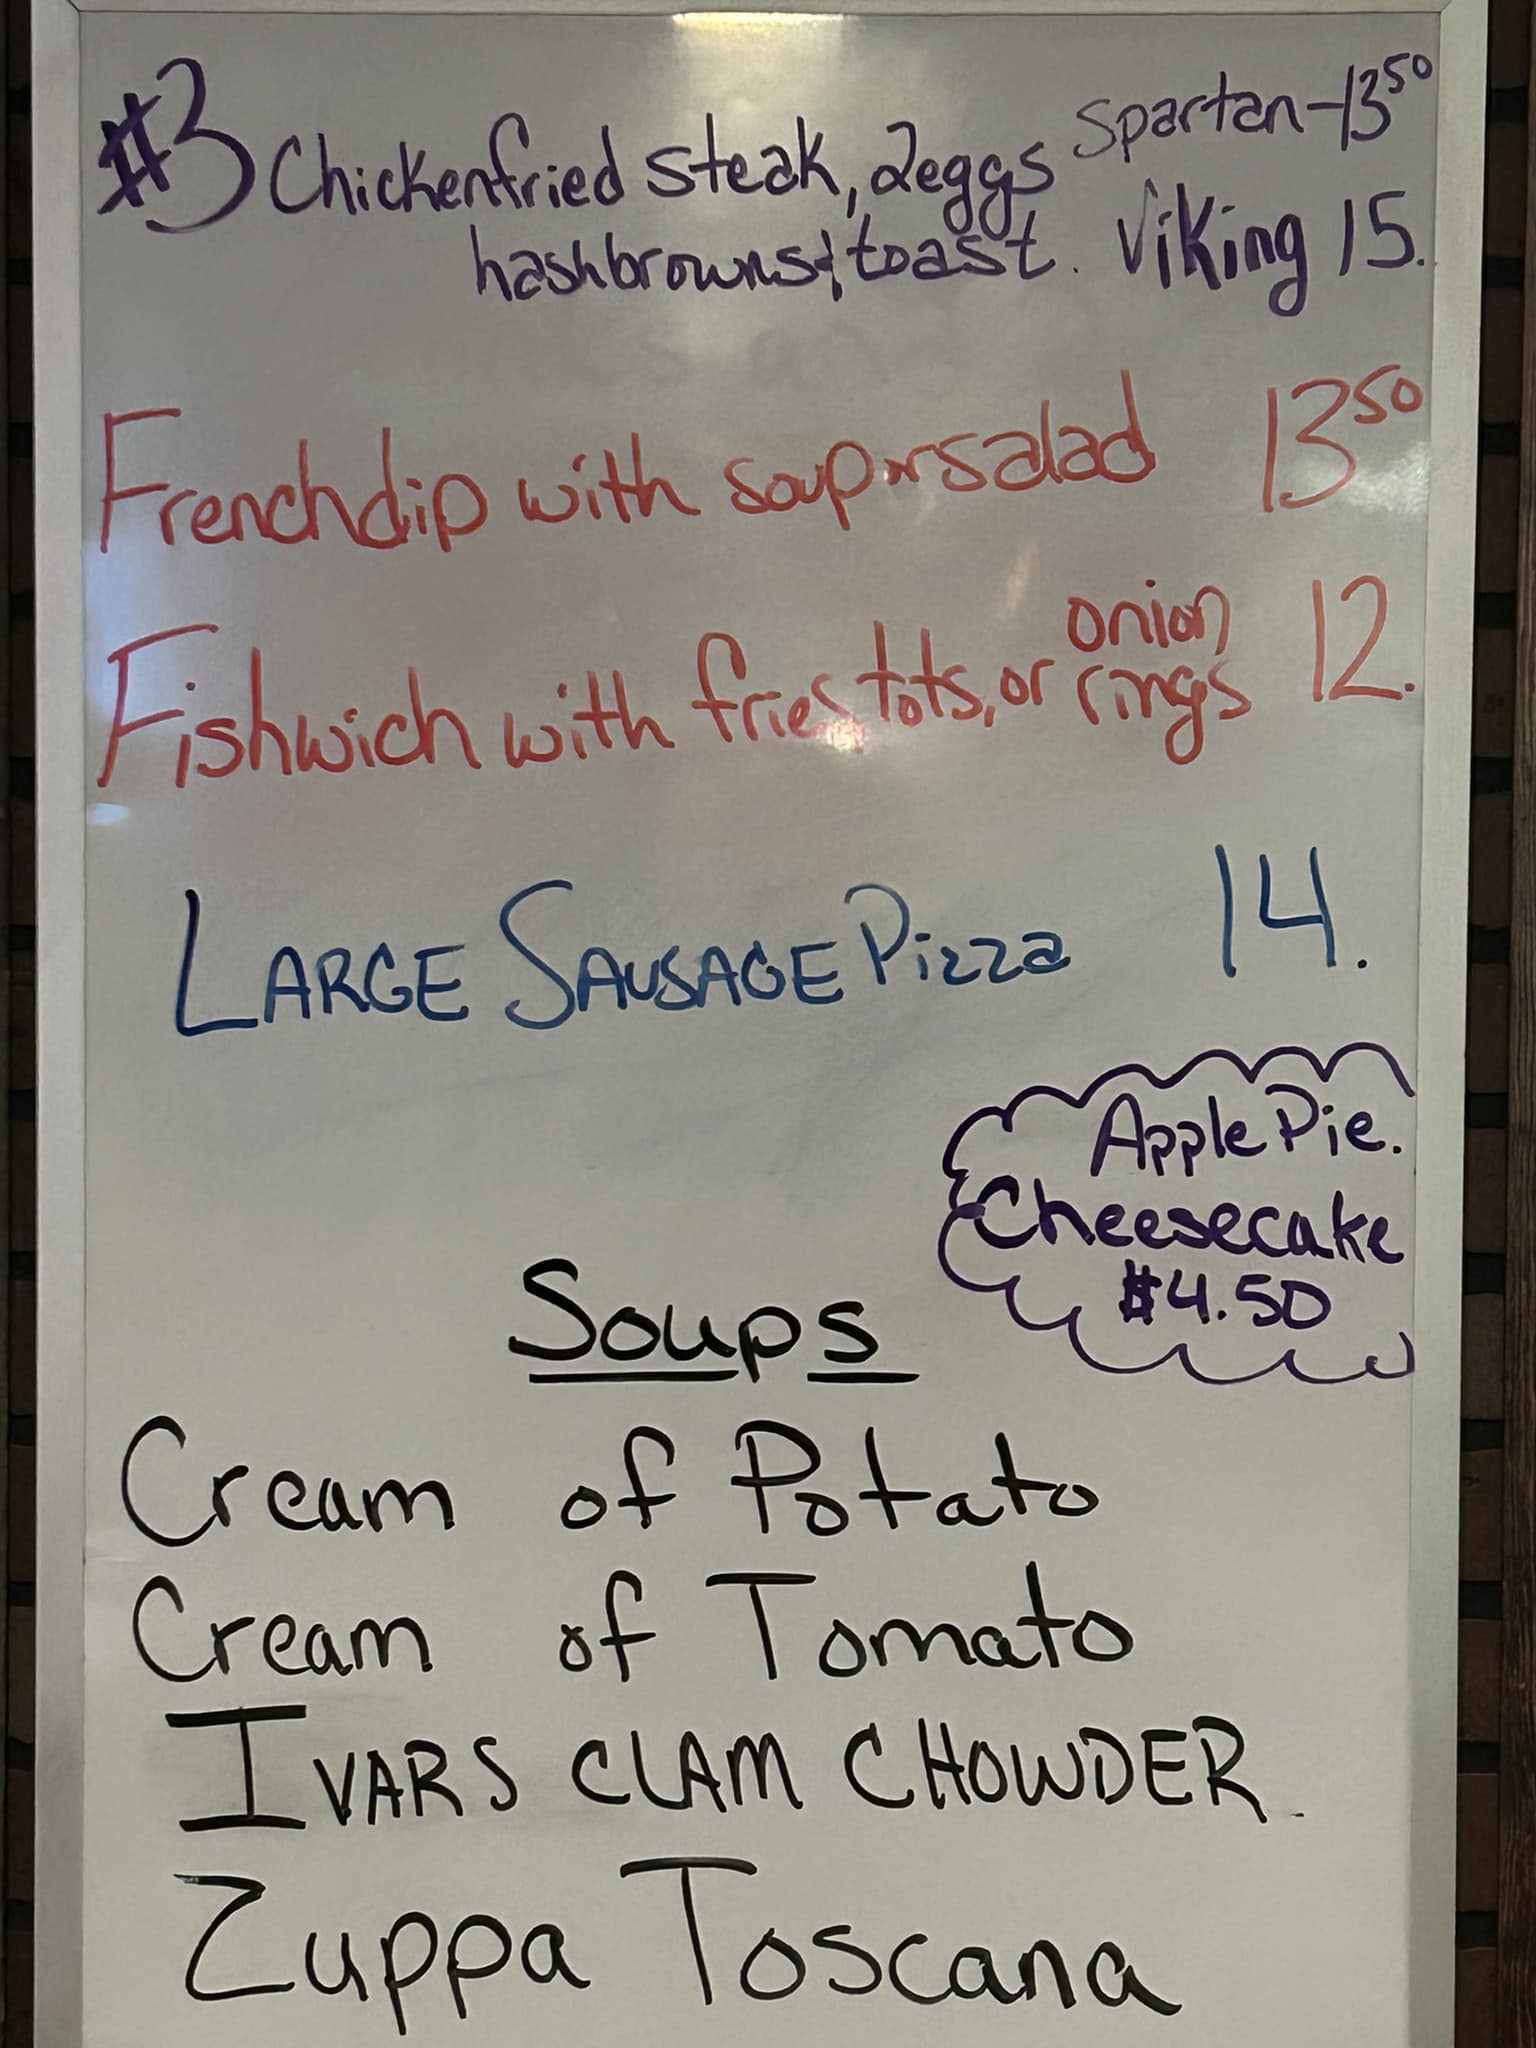 #3 Chickenfried steak, 2eggs Spartan-13 50
hashbrowns & toast. Viking 15.
Frenchdip with soup or salad 13 50
Fishwich with fries, tots, or onion rings 12.
LARGE SAUSAGE Pizza 14.
Apple Pie.
Cheesecake
#4.50
Soups
Cream of Potato
Cream of Tomato
IVARS CLAM CHOWDER
Zuppa Toscana